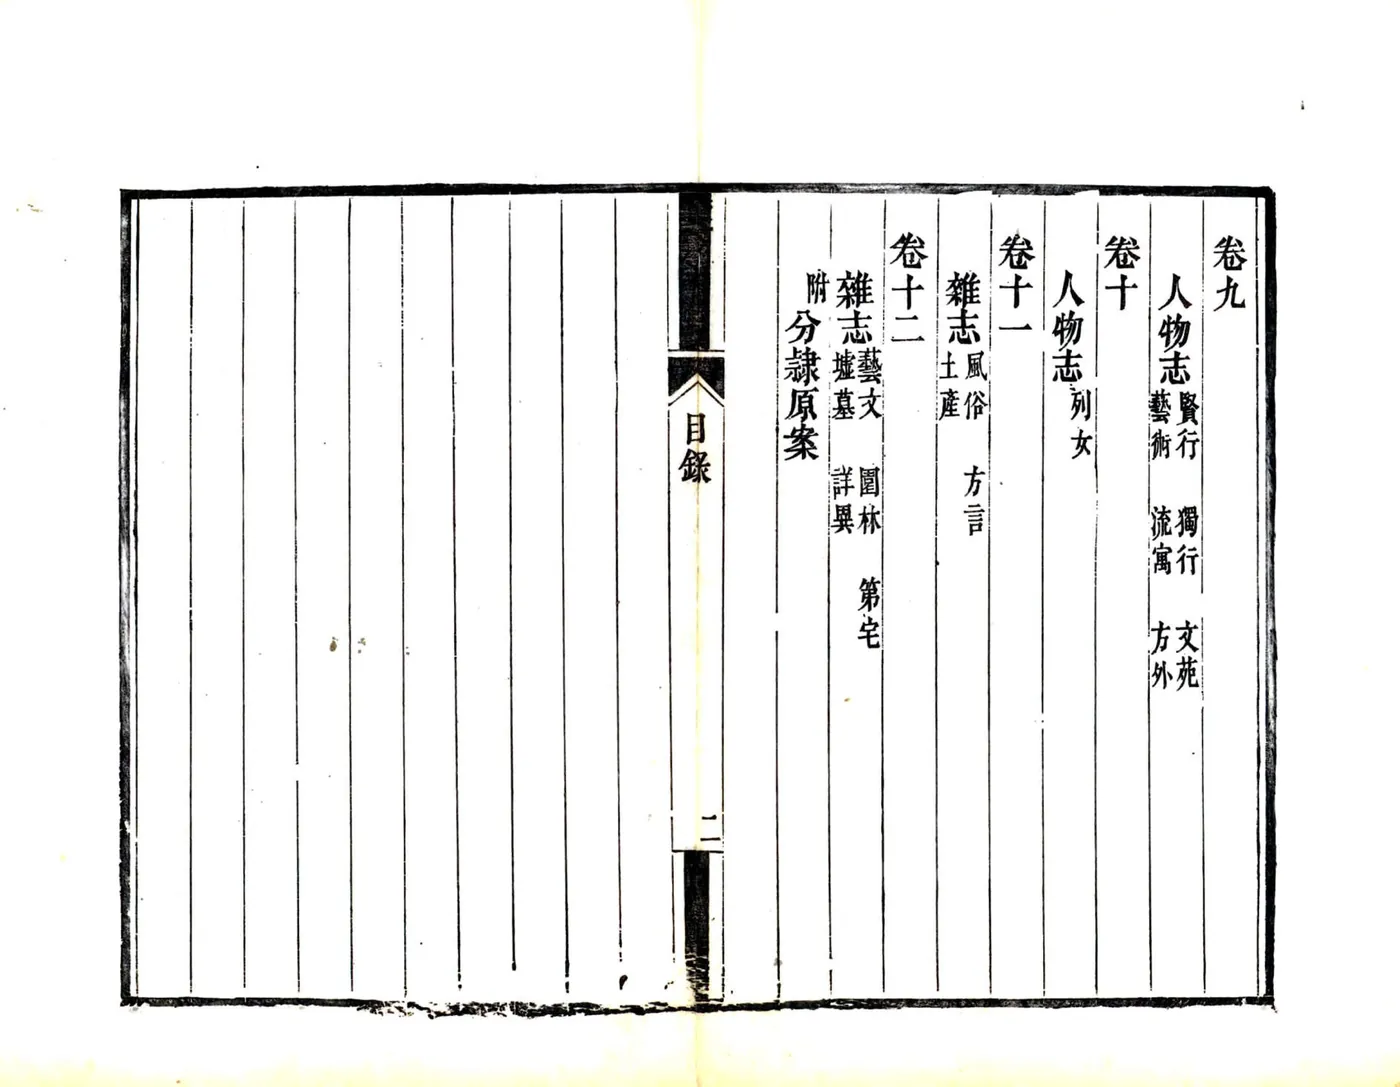 卷九
人物志 賢行 獨行 文苑
藝術 流寓 方外
卷十
人物志 列女
卷十一
雜志 風俗 方言
土產
卷十二
雜志 藝文 園林 第宅
墟墓 詳異
附 分隸原案
目錄
二